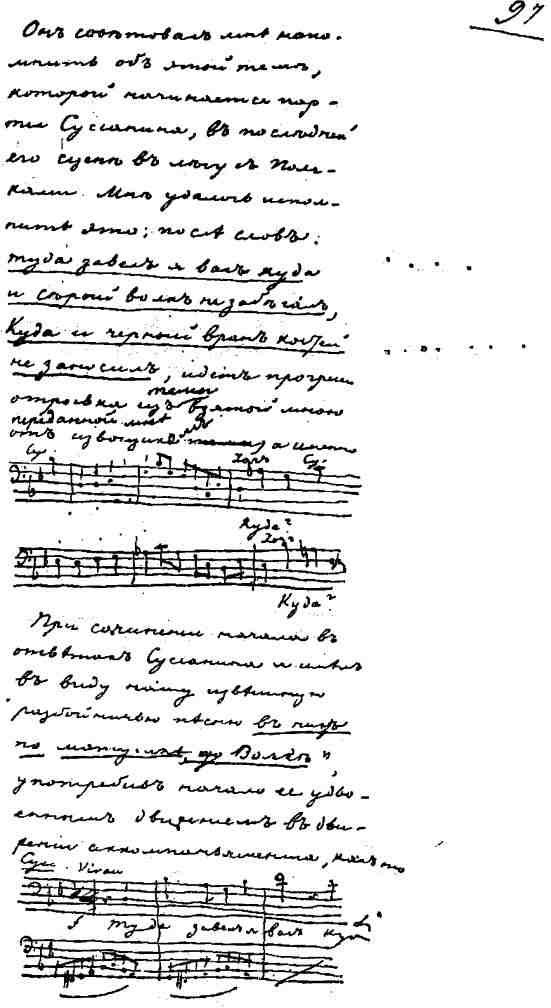 97
Онъ совѣтовалъ мнѣ напо-
мнить объ этой темѣ,
которой начинается пар-
тія Сусанина, въ послѣдней
его сценѣ въ лѣсу съ Поля-
ками. Мнѣ удалось испол-
нить это; послѣ словъ:
туда завелъ я васъ куда
и сѣрый волкъ не забѣгалъ,
Куда и черный вранъ костей
не заносилъ, идетъ прогрес
отрывка изъ темы взятой мною
переданной мнѣ
отъ извощика, а именно
Су
Хоръ
Су
Куда?
Хоръ
Куда?
При сочиненіи начала въ
отвѣтахъ Сусанина я имѣлъ
въ виду нашу извѣстную
разбойничью пѣсню въ низъ
по матушкѣ, по Волгѣ
употребивъ начало ее удво-
еннымъ движеніемъ въ дви-
женіи аккомпаньямента, какъ то
Сус.
Туда завелъ я васъ куда